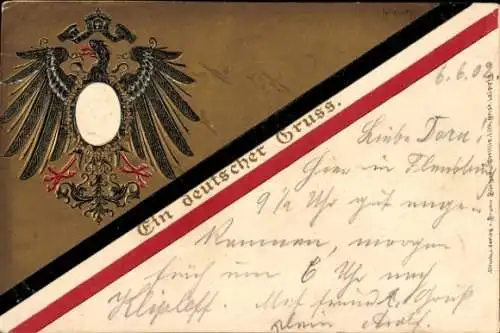 6.6.02.
Ein deutscher Gruss.
Liebe Dora.
Hier in Flensburg
9½ Uhr gut ange-
kommen, morgen
früh um 6 Uhr nach
Klipleff. Mit freundl. Gruß
dein Adolf